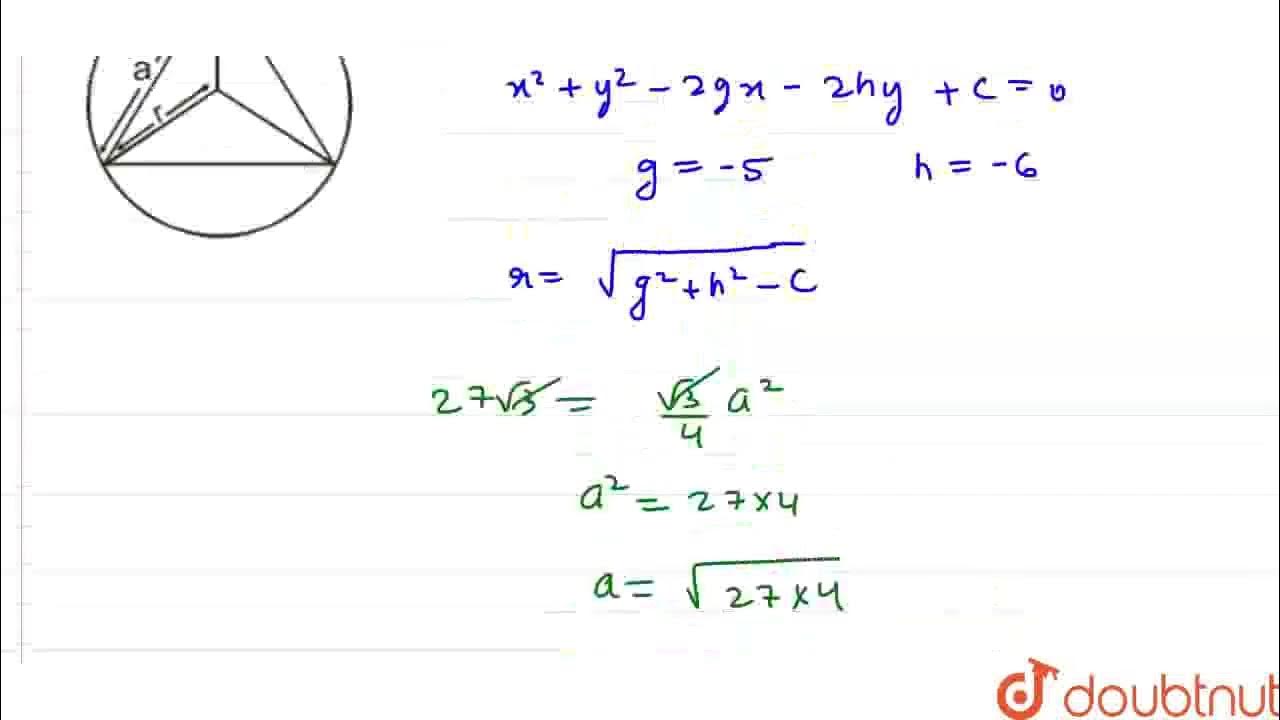 a
r
x² + y² - 2gx - 2hy + c = 0
g = -5 h = -6
r = √(g² + h² - c)
27√3 = √3/4 a²
a² = 27 × 4
a = √(27 × 4)
doubtnut